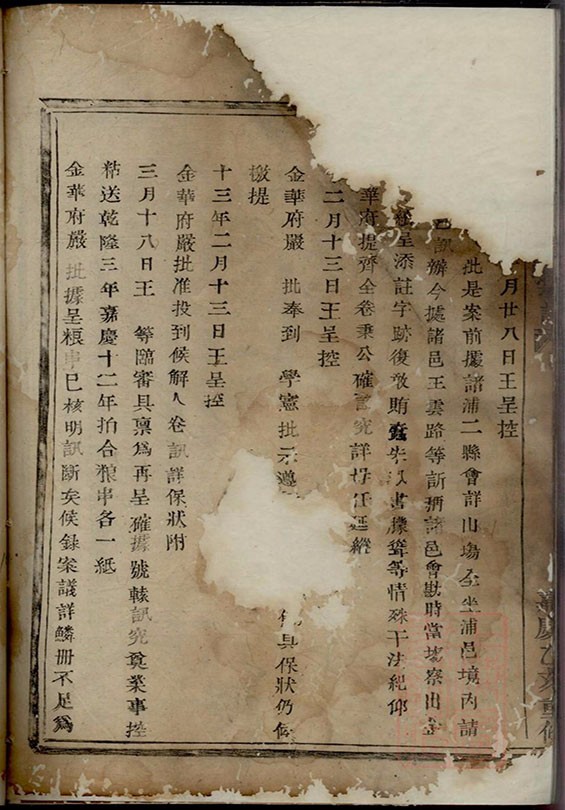 月廿八日王呈控
批是案前據諸浦二縣會詳山塲坐浦邑境內請
訊辦今據諸邑王雲路等訴稱諸邑會勘時當塲察出
呈添註字跡復敢賄書等情殊干法紀仰
華府提齊全卷秉公確訊究詳毋任延縱
二月十三日王呈控
金華府嚴 批奉到 學憲批示遵 具保狀仍候
檄提
十三年二月十三日王呈控
金華府嚴批准投到候解人卷訊詳保狀附
三月十八日王 等臨審具稟爲再呈確據號轅訊究奠業事控
粘送乾隆三年嘉慶十二年拍合粮串各一紙
金華府嚴 批據呈粮串已核明訊斷矣候録案議詳鱗冊不足爲
嘉慶乙亥重修